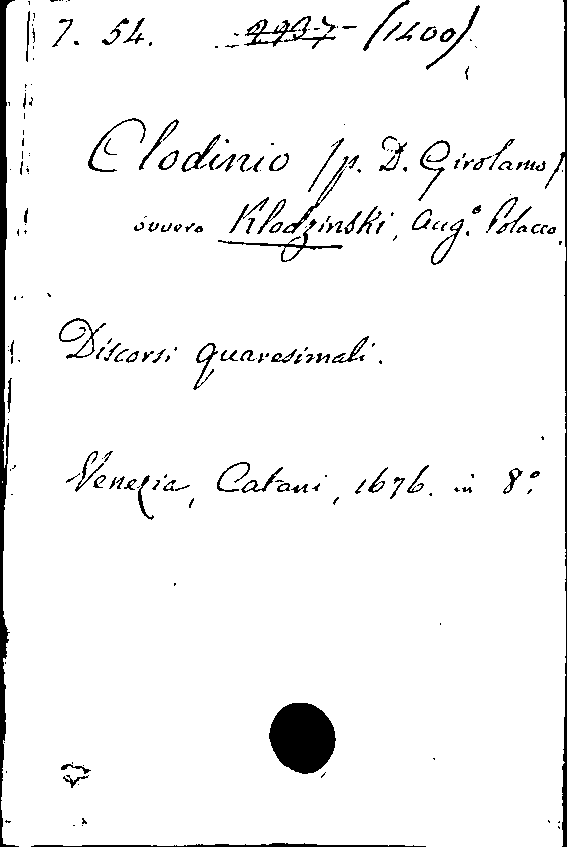 7. 54. 2937 (1400)
Clodinio (p. D. Girolamo)
ovvero Klodzinski, Aug.° Polacco.
Discorsi quaresimali.
Venezia, Catani, 1676. in 8°.